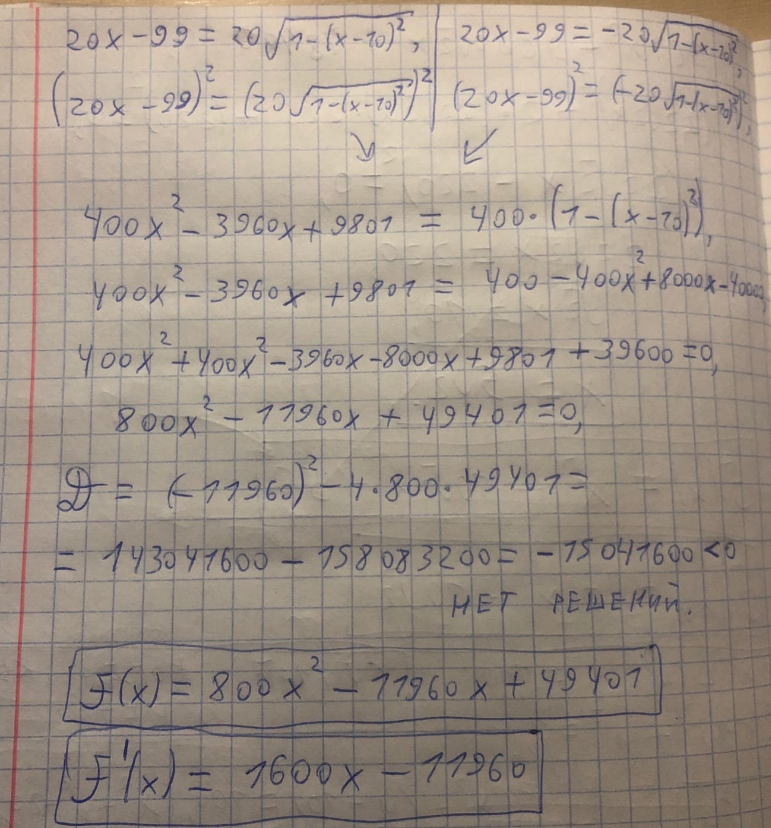 20x-99=20√1-(x-10)², | 20x-99=-20√1-(x-10)²,
(20x-99)²=(20√1-(x-10)²)² | (20x-99)²=(-20√1-(x-10)²)²,
400x²-3960x+9801=400·(1-(x-10)²),
400x²-3960x+9801=400-400x²+8000x-40000,
400x²+400x²-3960x-8000x+9801+39600=0,
800x²-11960x+49401=0,
D=(-11960)²-4·800·49401=
=143041600-158083200=-15041600<0
НЕТ РЕШЕНИЙ.
F(x)=800x²-11960x+49401
F'(x)=1600x-11960